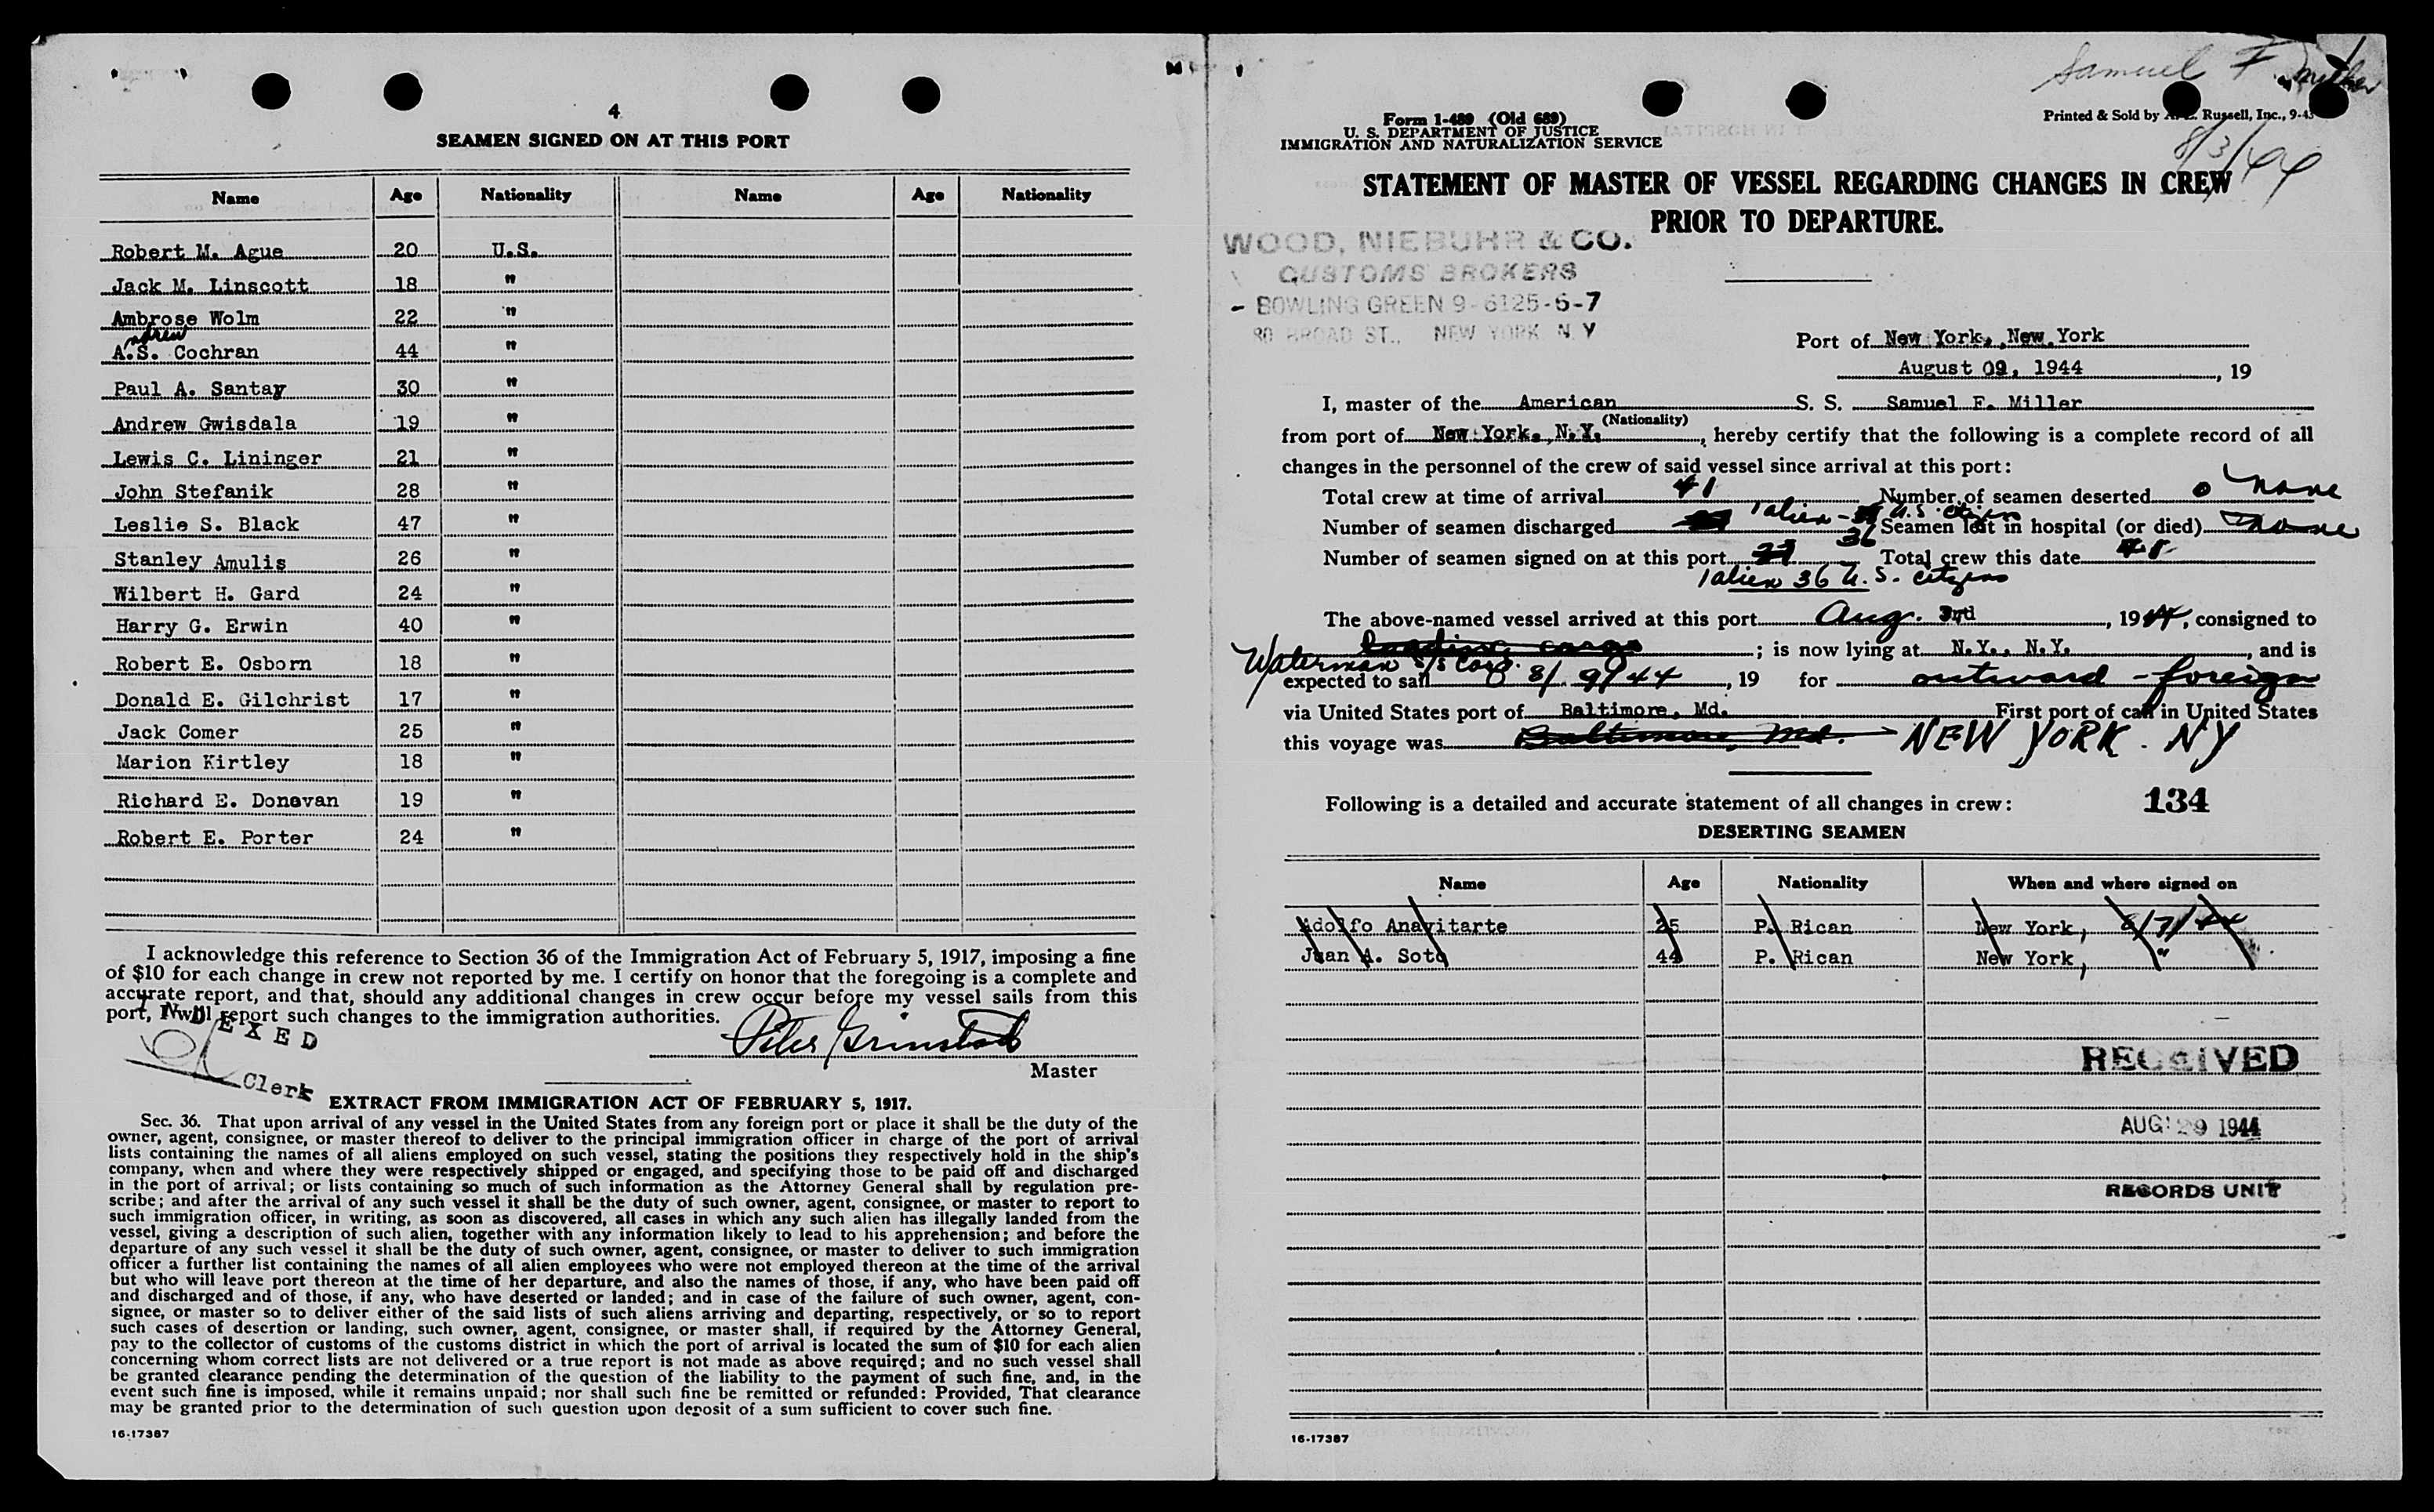 4
SEAMEN SIGNED ON AT THIS PORT
Name Age Nationality Name Age Nationality
Robert M. Ague 20 U.S.
Jack M. Linscott 18 "
Ambrose Wolm 22 "
ndrew
A.S. Cochran 44 "
Paul A. Santay 30 "
Andrew Gwisdala 19 "
Lewis C. Lininger 21 "
John Stefanik 28 "
Leslie S. Black 47 "
Stanley Amulis 26 "
Wilbert H. Gard 24 "
Harry G. Erwin 40 "
Robert E. Osborn 18 "
Donald E. Gilchrist 17 "
Jack Comer 25 "
Marion Kirtley 18 "
Richard E. Donovan 19 "
Robert E. Porter 24 "
I acknowledge this reference to Section 36 of the Immigration Act of February 5, 1917, imposing a fine
of $10 for each change in crew not reported by me. I certify on honor that the foregoing is a complete and
accurate report, and that, should any additional changes in crew occur before my vessel sails from this
port, I will report such changes to the immigration authorities.
INDEXED
Clerk
Peter Grimstad
Master
EXTRACT FROM IMMIGRATION ACT OF FEBRUARY 5, 1917.
Sec. 36. That upon arrival of any vessel in the United States from any foreign port or place it shall be the duty of the
owner, agent, consignee, or master thereof to deliver to the principal immigration officer in charge of the port of arrival
lists containing the names of all aliens employed on such vessel, stating the positions they respectively hold in the ship's
company, when and where they were respectively shipped or engaged, and specifying those to be paid off and discharged
in the port of arrival; or lists containing so much of such information as the Attorney General shall by regulation pre-
scribe; and after the arrival of any such vessel it shall be the duty of such owner, agent, consignee, or master to report to
such immigration officer, in writing, as soon as discovered, all cases in which any such alien has illegally landed from the
vessel, giving a description of such alien, together with any information likely to lead to his apprehension; and before the
departure of any such vessel it shall be the duty of such owner, agent, consignee, or master to deliver to such immigration
officer a further list containing the names of all alien employees who were not employed thereon at the time of the arrival
but who will leave port thereon at the time of her departure, and also the names of those, if any, who have been paid off
and discharged and of those, if any, who have deserted or landed; and in case of the failure of such owner, agent, con-
signee, or master so to deliver either of the said lists of such aliens arriving and departing, respectively, or so to report
such cases of desertion or landing, such owner, agent, consignee, or master shall, if required by the Attorney General,
pay to the collector of customs of the customs district in which the port of arrival is located the sum of $10 for each alien
concerning whom correct lists are not delivered or a true report is not made as above required; and no such vessel shall
be granted clearance pending the determination of the question of the liability to the payment of such fine, and, in the
event such fine is imposed, while it remains unpaid; nor shall such fine be remitted or refunded: Provided, That clearance
may be granted prior to the determination of such question upon deposit of a sum sufficient to cover such fine.
16-17387
Samuel F. Miller
Form 1-489 (Old 689)
U. S. DEPARTMENT OF JUSTICE
IMMIGRATION AND NATURALIZATION SERVICE
Printed & Sold by Russell, Inc., 9-43
8/3/44
STATEMENT OF MASTER OF VESSEL REGARDING CHANGES IN CREW
PRIOR TO DEPARTURE.
WOOD, NIEBUHR & CO.
CUSTOMS BROKERS
BOWLING GREEN 9-6125-6-7
80 BROAD ST., NEW YORK N Y
Port of New York, New York
August 09, 1944, 19
I, master of the American S. S. Samuel F. Miller
(Nationality)
from port of New York, N.Y., hereby certify that the following is a complete record of all
changes in the personnel of the crew of said vessel since arrival at this port:
Total crew at time of arrival 41 Number of seamen deserted 0 None
Number of seamen discharged 1 alien - 36 U.S. citizen Seamen left in hospital (or died) None
Number of seamen signed on at this port Total crew this date
1 alien 36 U.S. citizens
The above-named vessel arrived at this port Aug. 3rd, 1944, consigned to
loading cargo ; is now lying at N.Y., N.Y., and is
Waterman S/S Corp.
expected to sail 8/9/44, 19 for outward - foreign
via United States port of Baltimore, Md. First port of call in United States
this voyage was Baltimore, Md. NEW YORK. NY
Following is a detailed and accurate statement of all changes in crew: 134
DESERTING SEAMEN
Name Age Nationality When and where signed on
Adolfo Anavitarte 25 P. Rican New York, 8/7/44
Juan A. Soto 44 P. Rican New York, "
RECEIVED
AUG 29 1944
RECORDS UNIT
16-17387